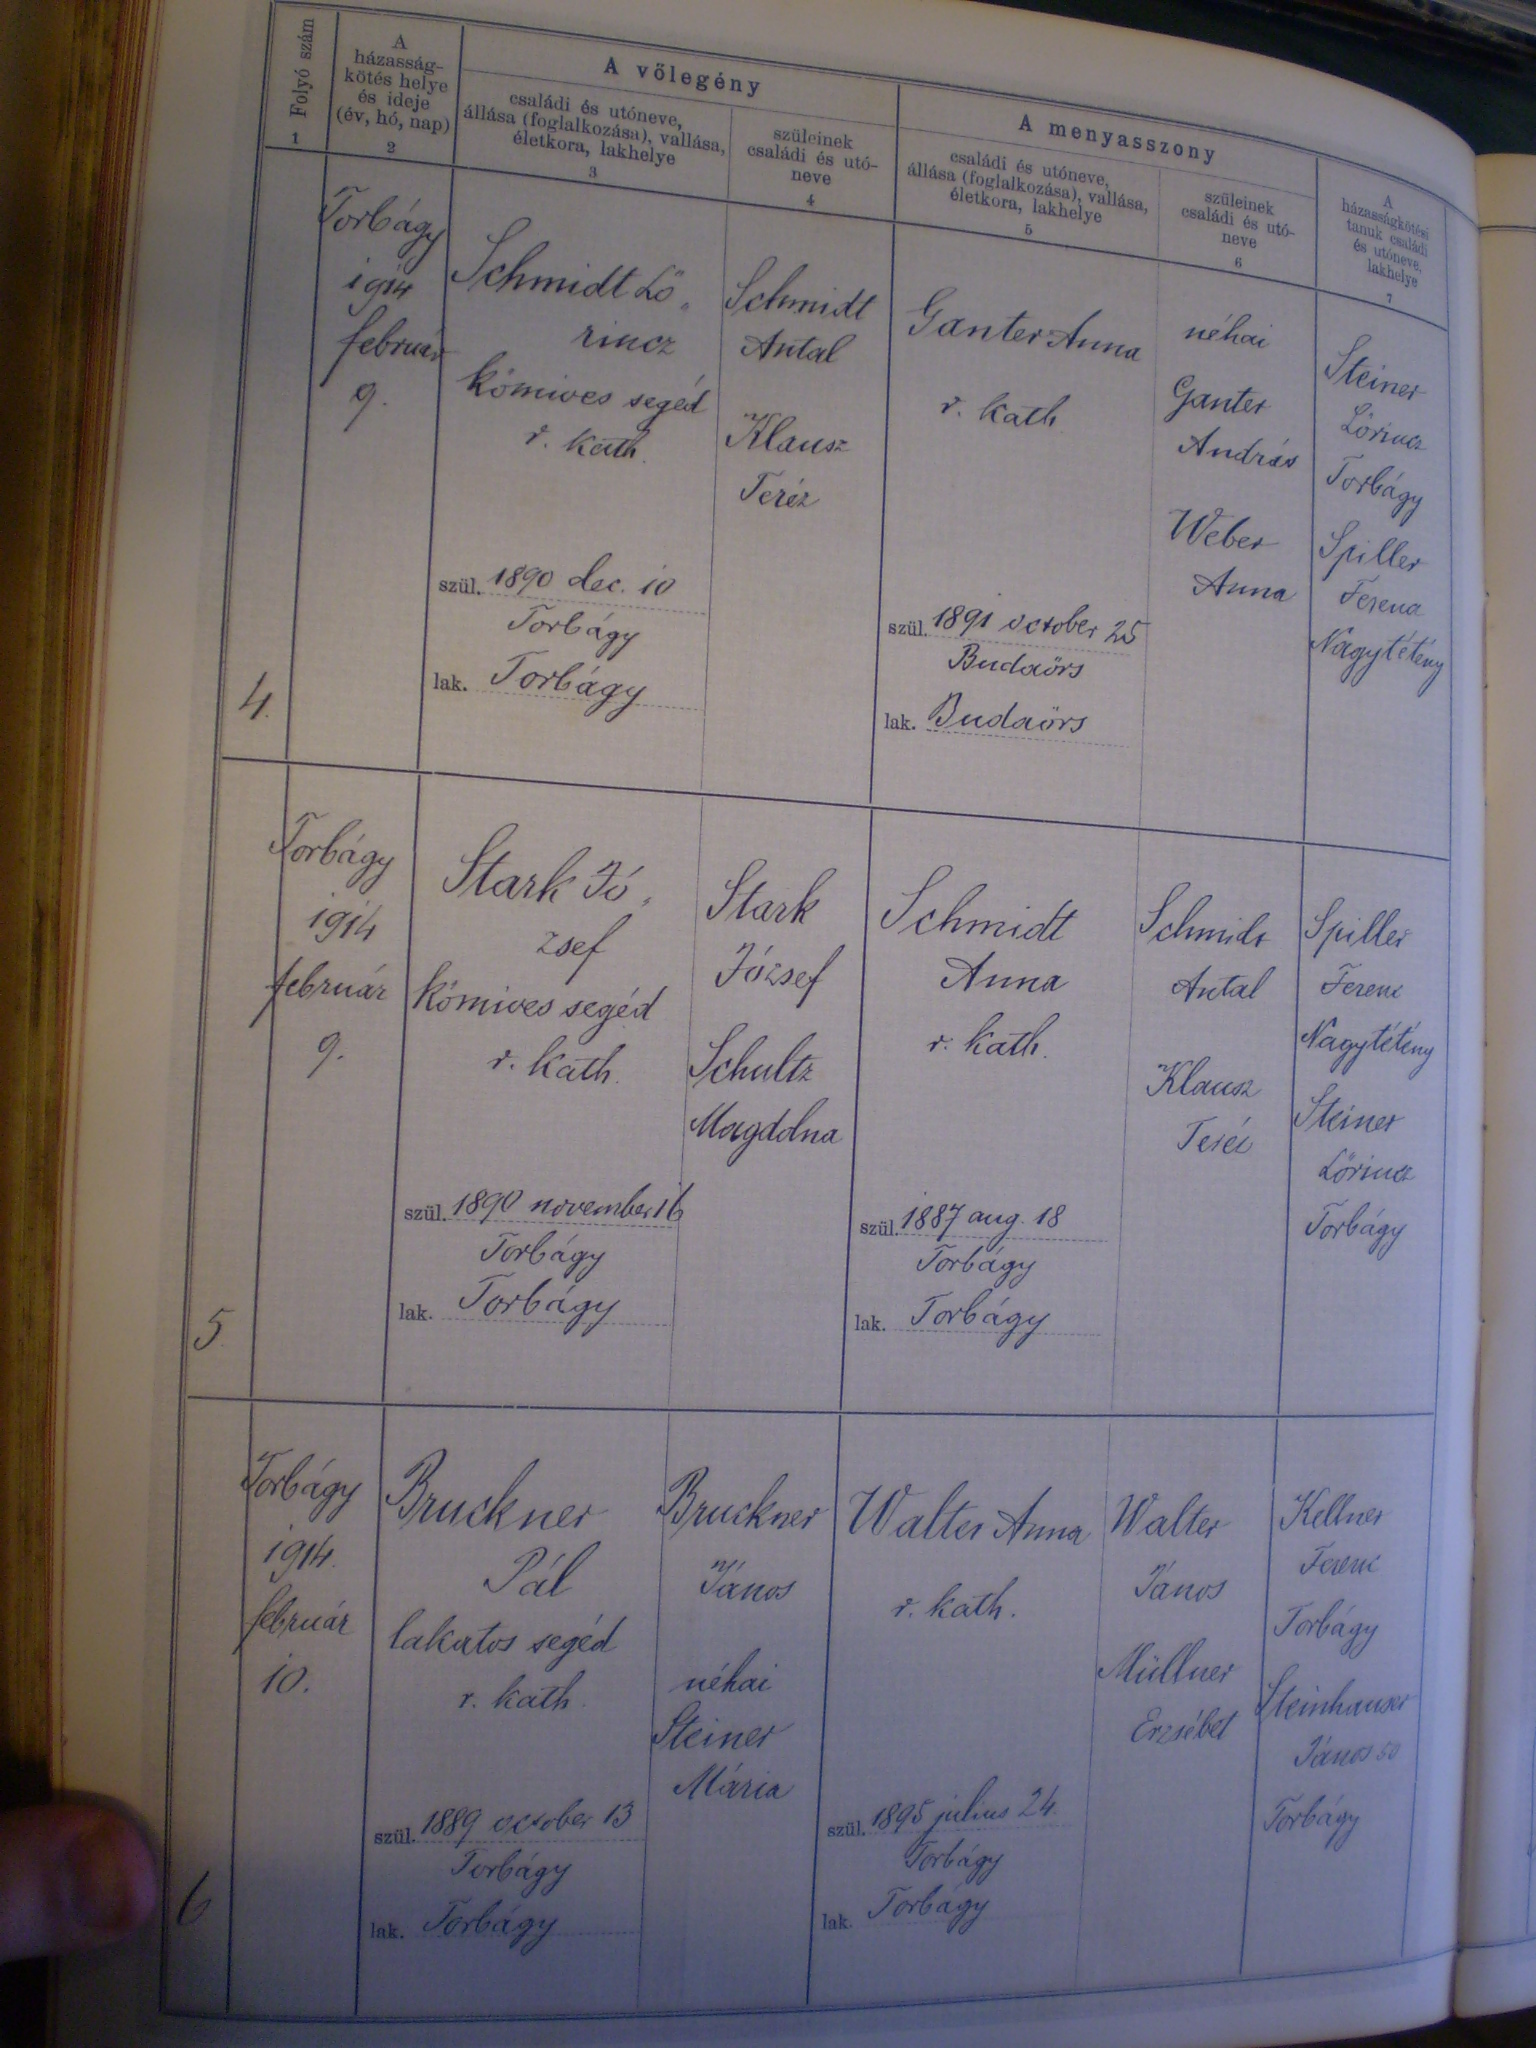 Folyó szám
1
A
házasság-
kötés helye
és ideje
(év, hó, nap)
2
A vőlegény
családi és utóneve,
állása (foglalkozása), vallása,
életkora, lakhelye
3
szüleinek
családi és utó-
neve
4
A menyasszony
családi és utóneve,
állása (foglalkozása), vallása,
életkora, lakhelye
5
szüleinek
családi és utó-
neve
6
A
házasságkötési
tanuk családi
és utóneve,
lakhelye
7
4.
Torbágy
1914
február
9.
Schmidt Lő„
rincz
kömives segéd
r. kath.
szül. 1890 dec. 10
Torbágy
lak. Torbágy
Schmidt
Antal
Klausz
Teréz
Ganter Anna
r. kath
szül. 1891 october 25
Budaörs
lak. Budaörs
néhai
Ganter
András
Weber
Anna
Steiner
Lőrincz
Torbágy
Spiller
Ferencz
Nagytétény
5.
Torbágy
1914
február
9.
Stark Jó„
zsef
kömives segéd
r. kath.
szül. 1890 november 16
Torbágy
lak. Torbágy
Stark
József
Schultz
Magdolna
Schmidt
Anna
r. kath.
szül. 1887 aug. 18
Torbágy
lak. Torbágy
Schmidt
Antal
Klausz
Teréz
Spiller
Ferenc
Nagytétény
Steiner
Lőrincz
Torbágy
6
Torbágy
1914.
február
10.
Bruckner
Pál
lakatos segéd
r. kath.
szül. 1889 october 13
Torbágy
lak. Torbágy
Bruckner
János
néhai
Steiner
Mária
Walter Anna
r. kath.
szül. 1895 július 24.
Torbágy
lak. Torbágy
Walter
János
Müllner
Erzsébet
Kellner
Ferenc
Torbágy
Steinhauser
János 50
Torbágy